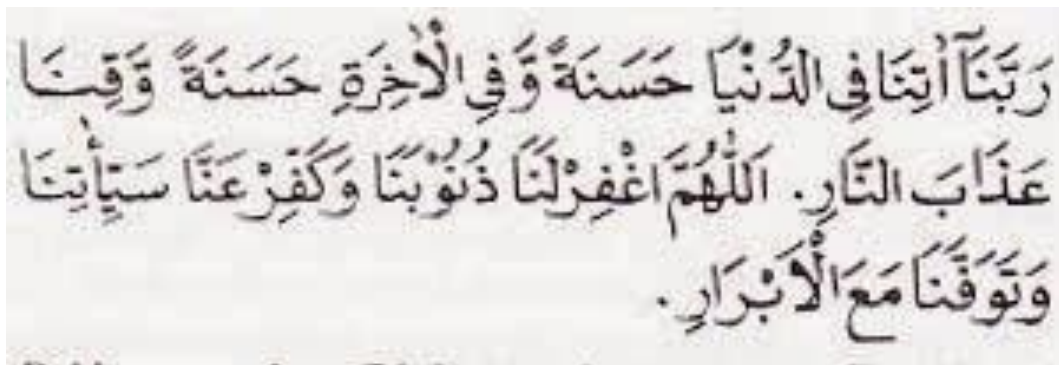 رَبَّنَآ اٰتِنَا فِى الدُّنْيَا حَسَنَةً وَّفِى الْاٰخِرَةِ حَسَنَةً وَّقِنَا
عَذَابَ النَّارِ. اَللّٰهُمَّ اغْفِرْلَنَا ذُنُوْبَنَا وَكَفِّرْ عَنَّا سَيِّاٰتِنَا
وَتَوَفَّنَا مَعَ الْاَبْرَارِ.